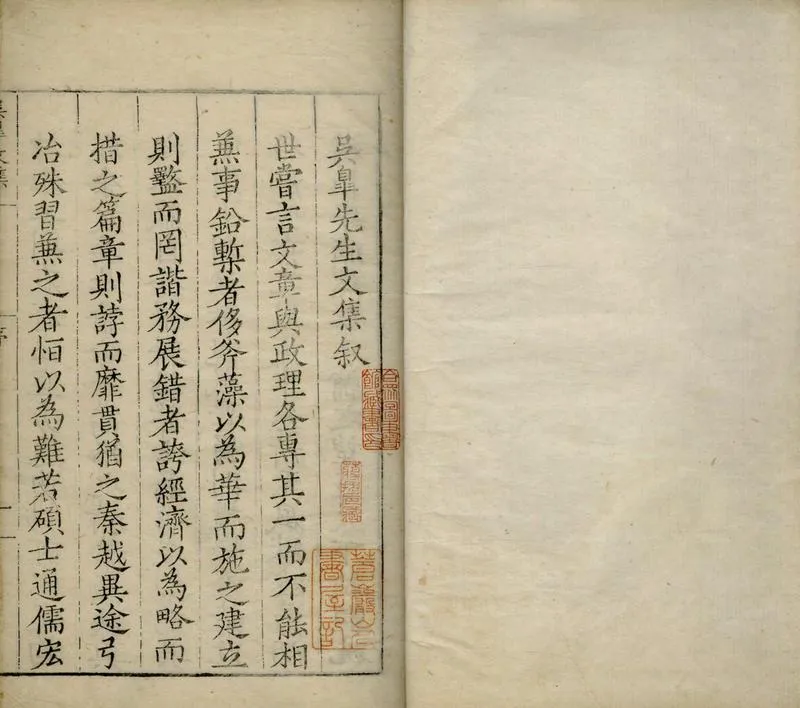 吳臯先生文集叙
世嘗言文章與政理各專其一而不能相
兼事鉛槧者侈斧藻以為華而施之建立
則盭而罔諧務展錯者誇經濟以為略而
措之篇章則誖而靡貫猶之秦越異途弓
冶殊習兼之者恒以為難若碩士通儒宏